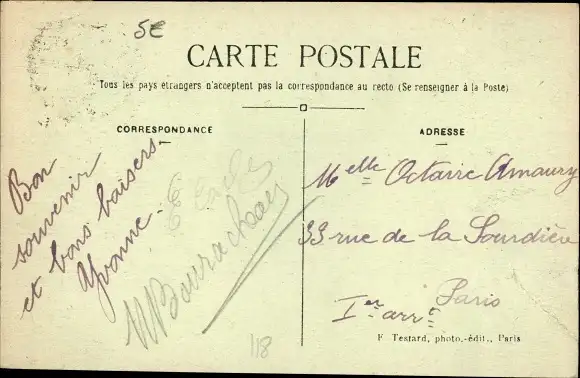 5E
CARTE POSTALE
Tous les pays étrangers n'acceptent pas la correspondance au recto (Se renseigner à la Poste)
CORRESPONDANCE
Bon
souvenir
et bons baisers
Yvonne.
118
ADRESSE
Melle Octavie Amaury
33 rue de la Sourdière
Paris
Ier arrt
F. Testard, photo.-édit., Paris